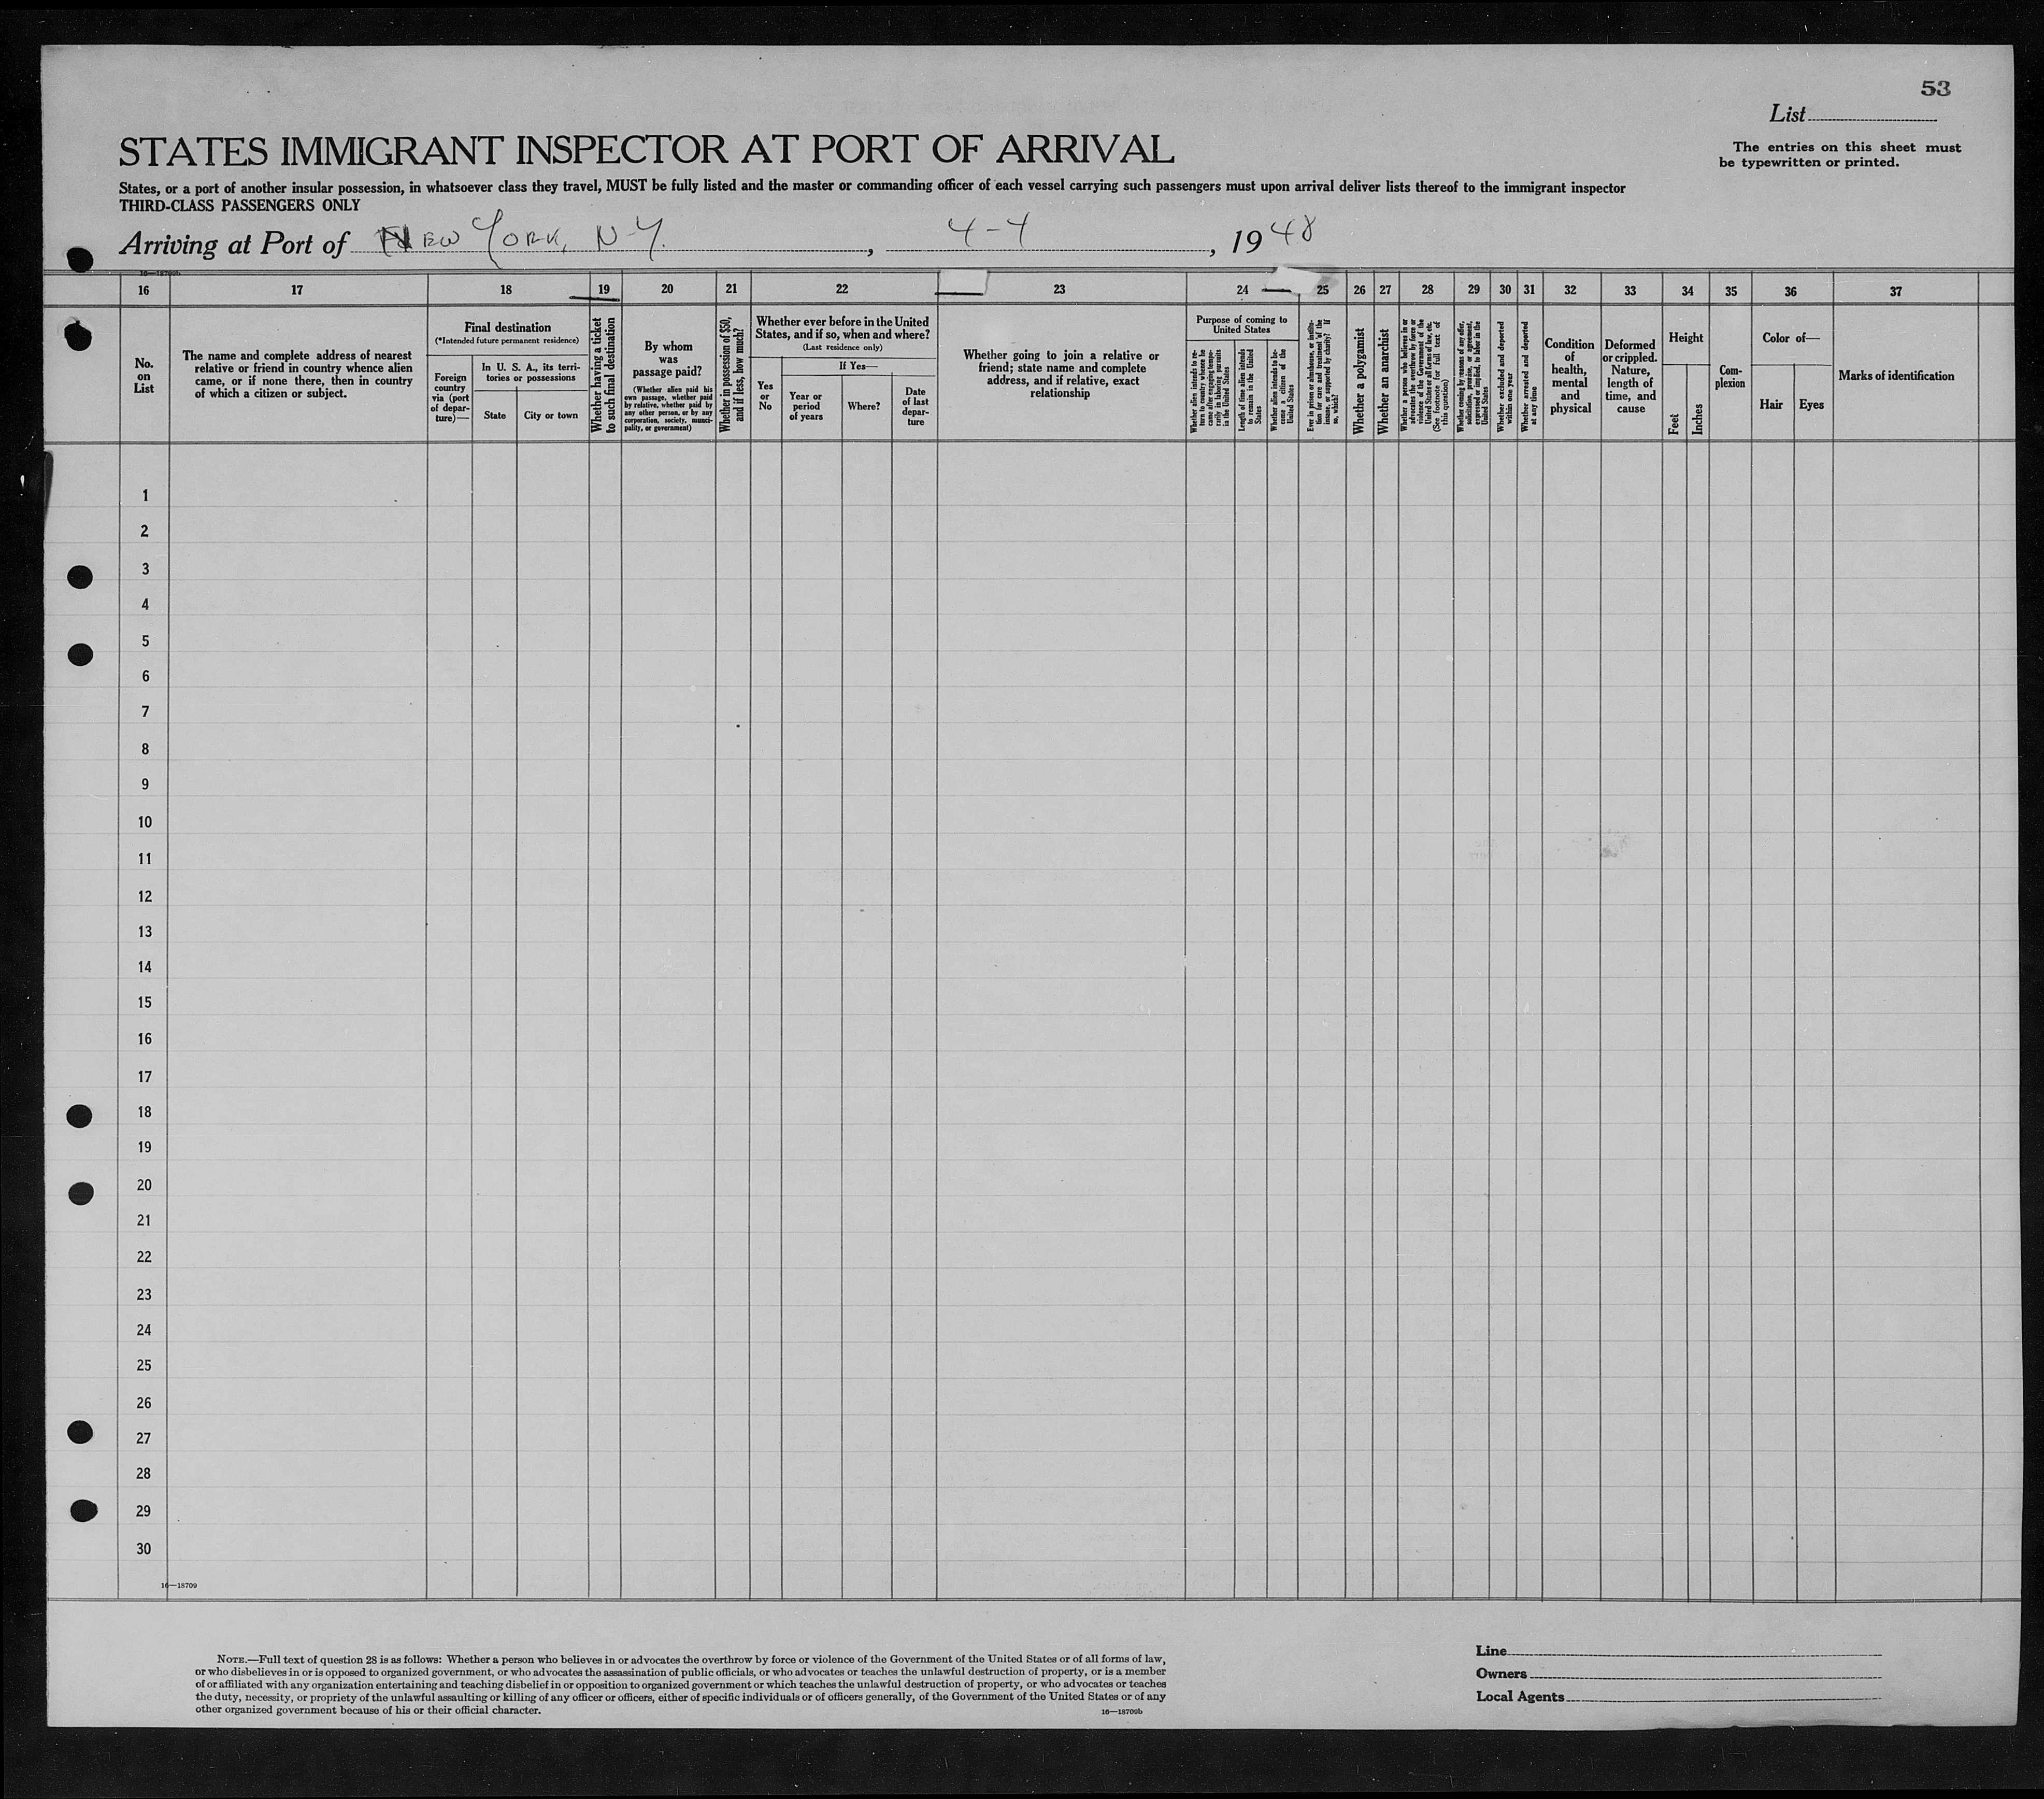 53
List
STATES IMMIGRANT INSPECTOR AT PORT OF ARRIVAL
The entries on this sheet must
be typewritten or printed.
States, or a port of another insular possession, in whatsoever class they travel, MUST be fully listed and the master or commanding officer of each vessel carrying such passengers must upon arrival deliver lists thereof to the immigrant inspector
THIRD-CLASS PASSENGERS ONLY
Arriving at Port of New York, N-Y., 4-4, 1948
16—18709b
16 17 18 19 20 21 22 23 24 25 26 27 28 29 30 31 32 33 34 35 36 37
No.
on
List
The name and complete address of nearest
relative or friend in country whence alien
came, or if none there, then in country
of which a citizen or subject.
Final destination
(*Intended future permanent residence)
Foreign
country
via (port
of depar-
ture)—
In U. S. A., its terri-
tories or possessions
State
City or town
Whether having a ticket
to such final destination
By whom
was
passage paid?
(Whether alien paid his
own passage, whether paid
by relative, whether paid by
any other person, or by any
corporation, society, munici-
pality, or government)
Whether in possession of $50,
and if less, how much?
Whether ever before in the United
States, and if so, when and where?
(Last residence only)
Yes
or
No
If Yes—
Year or
period
of years
Where?
Date
of last
depar-
ture
Whether going to join a relative or
friend; state name and complete
address, and if relative, exact
relationship
Purpose of coming to
United States
Whether alien intends to re-
turn to country whence he
came after engaging tempo-
rarily in laboring pursuits
in the United States
Length of time alien intends
to remain in the United
States
Whether alien intends to be-
come a citizen of the
United States
Ever in prison or almshouse, or institu-
tion for care and treatment of the
insane, or supported by charity? If
so, which?
Whether a polygamist
Whether an anarchist
Whether a person who believes in or
advocates the overthrow by force or
violence of the Government of the
United States or all forms of law, etc.
(See footnote for full text of
this question)
Whether coming by reasons of any offer,
solicitation, promise, or agreement,
expressed or implied, to labor in the
United States
Whether excluded and deported
within one year
Whether arrested and deported
at any time
Condition
of
health,
mental
and
physical
Deformed
or crippled.
Nature,
length of
time, and
cause
Height
Feet
Inches
Com-
plexion
Color of—
Hair
Eyes
Marks of identification
1
2
3
4
5
6
7
8
9
10
11
12
13
14
15
16
17
18
19
20
21
22
23
24
25
26
27
28
29
30
16—18709
NOTE.—Full text of question 28 is as follows: Whether a person who believes in or advocates the overthrow by force or violence of the Government of the United States or of all forms of law,
or who disbelieves in or is opposed to organized government, or who advocates the assassination of public officials, or who advocates or teaches the unlawful destruction of property, or is a member
of or affiliated with any organization entertaining and teaching disbelief in or opposition to organized government or which teaches the unlawful destruction of property, or who advocates or teaches
the duty, necessity, or propriety of the unlawful assaulting or killing of any officer or officers, either of specific individuals or of officers generally, of the Government of the United States or of any
other organized government because of his or their official character.
16—18709b
Line
Owners
Local Agents